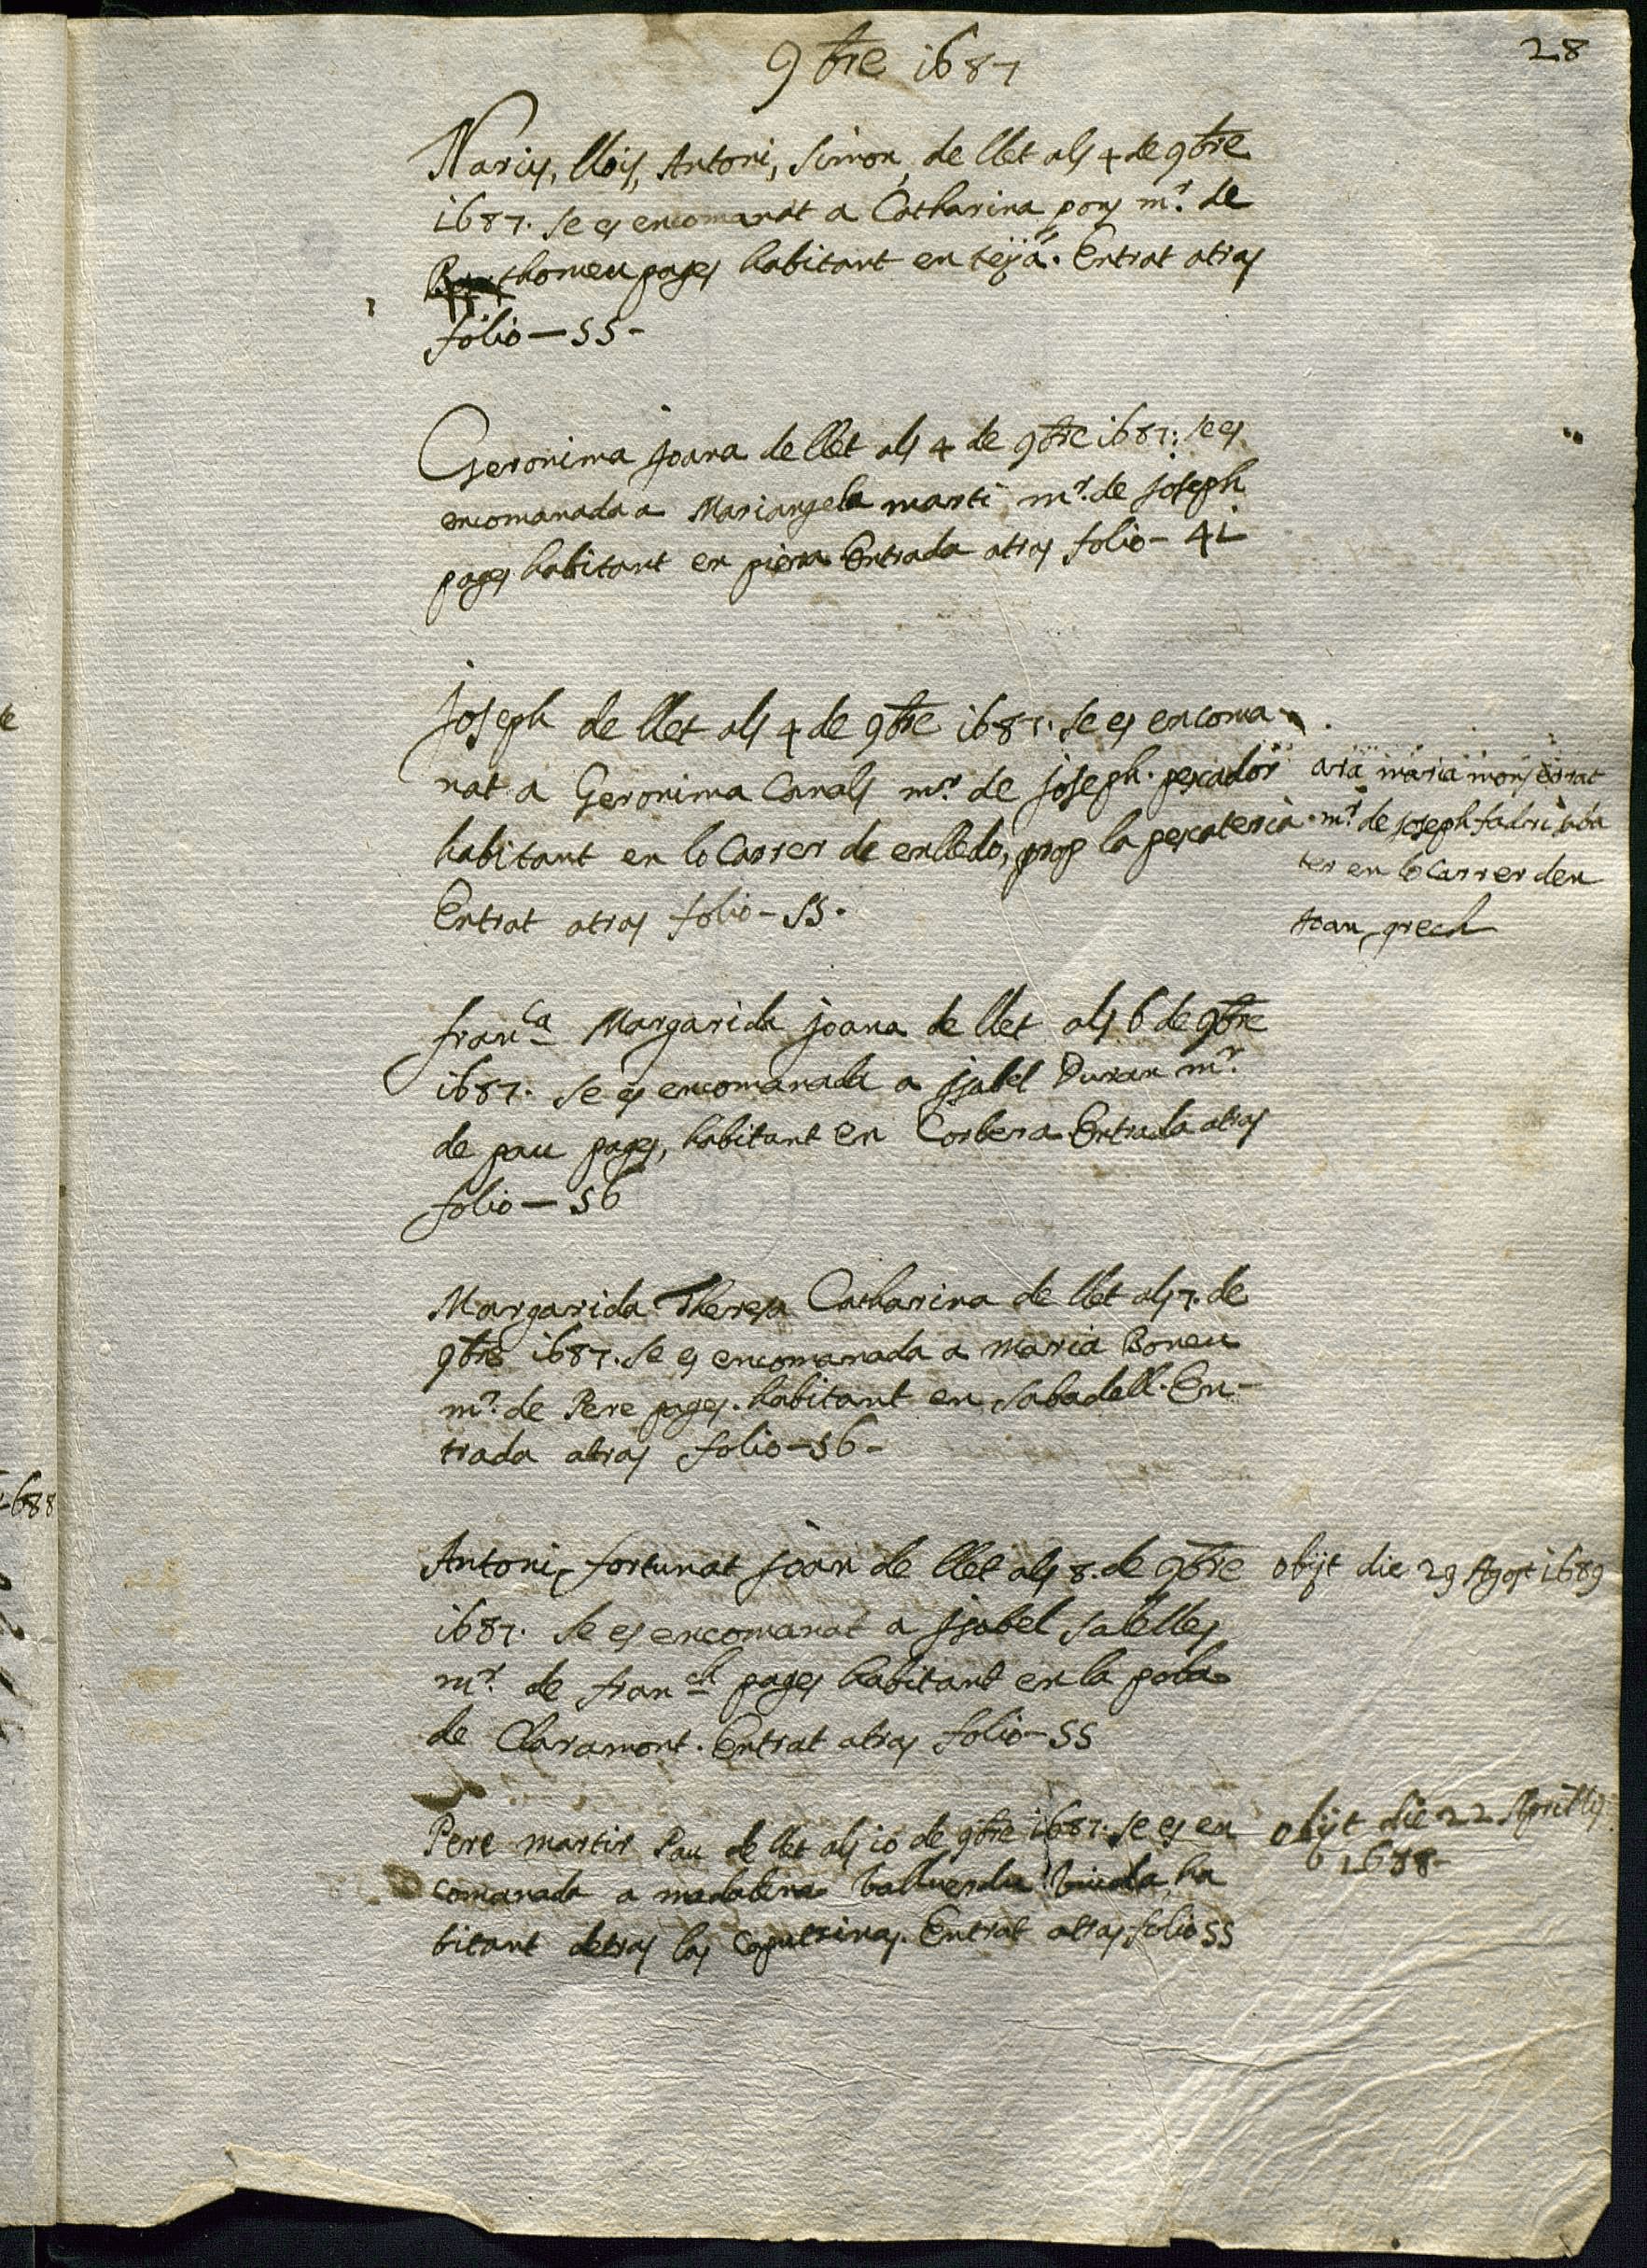 28
9bre 1687
Narcis, llois, Antoni, simon, de llet als 4 de 9bre
1687. se es encomanat a Catharina pons mr. de
Barthomeu pages habitant en teya. Entrat atras
folio — 55 -
Geronima Joana de llet als 4 de 9bre 1687: se es
encomanada a Mariangela marti mr. de Joseph
pages habitant en piera Entrada atras folio - 41
Joseph de llet als 4 de 9bre 1687. se es encoma
nat a Geronima Canals mr. de Joseph. pescador
habitant en lo Carrer de enlledo, prop la pescateria.
Entrat atras folio - 55.
ara maria monserrat
mr. de Joseph fadri
ter en lo Carrer den
Joan grech
franca Margarida joana de llet als 6 de 9bre
1687. se es encomanada a Jsabel Duran mr.
de pau pages, habitant en Corbera Entrada atras
folio — 56
Margarida Theresa Catharina de llet als 7. de
9bre 1687. se es encomanada a maria Boneu
mr. de Pere pages. habitant en sabadell. En-
trada atras folio - 56 -
Antoni, fortunat joan de llet als 8. de 9bre
1687. se es encomanat a Jsabel salelles
mr. de franch pages habitant en la pobla
de Claramont. Entrat atras folio - 55
obijt die 29 Agost 1689
Pere martir Pau de llet als 10 de 9bre 1687. se es en
comanada a madalena Vallverdu Viuda ha
bitant detras las Caputxinas. Entrat atras folio 55
obijt die 22 Aprillis
1688 -